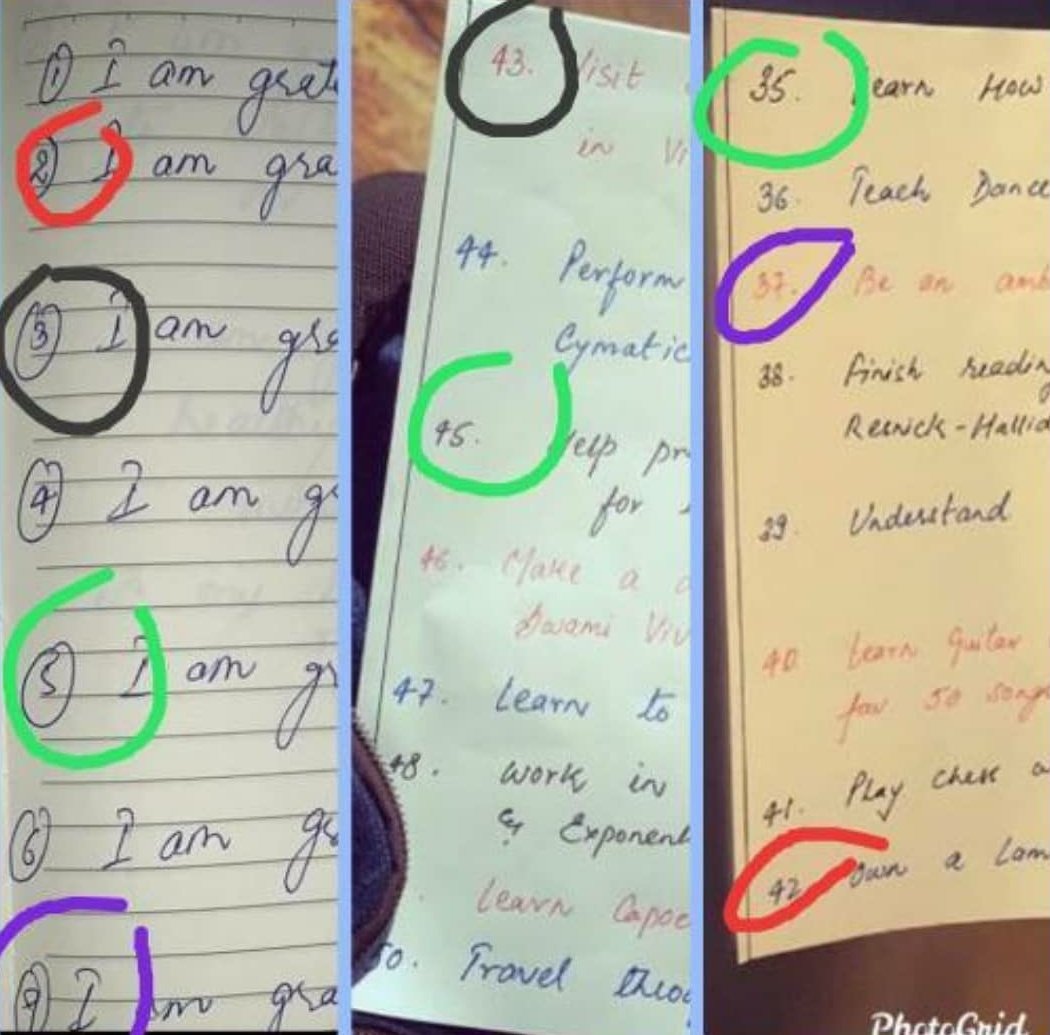 1 I am grat
2 I am gra
3 I am gra
4 I am gr
5 I am gr
6 I am gr
I am gra
43. Visit
in Vi
44. Perform
Cymatic
45. Help pr
for
46. Make a
Swami Viv
47. Learn to
48. Work in
& Exponent
Learn Capoe
50. Travel
35. Learn How
36. Teach Dance
37. Be an amb
38. Finish readin
Resnick-Hallid
39. Understand
40. Learn Guitar
for 50 song
41. Play Chess
42. Own a Lam
PhotoGrid